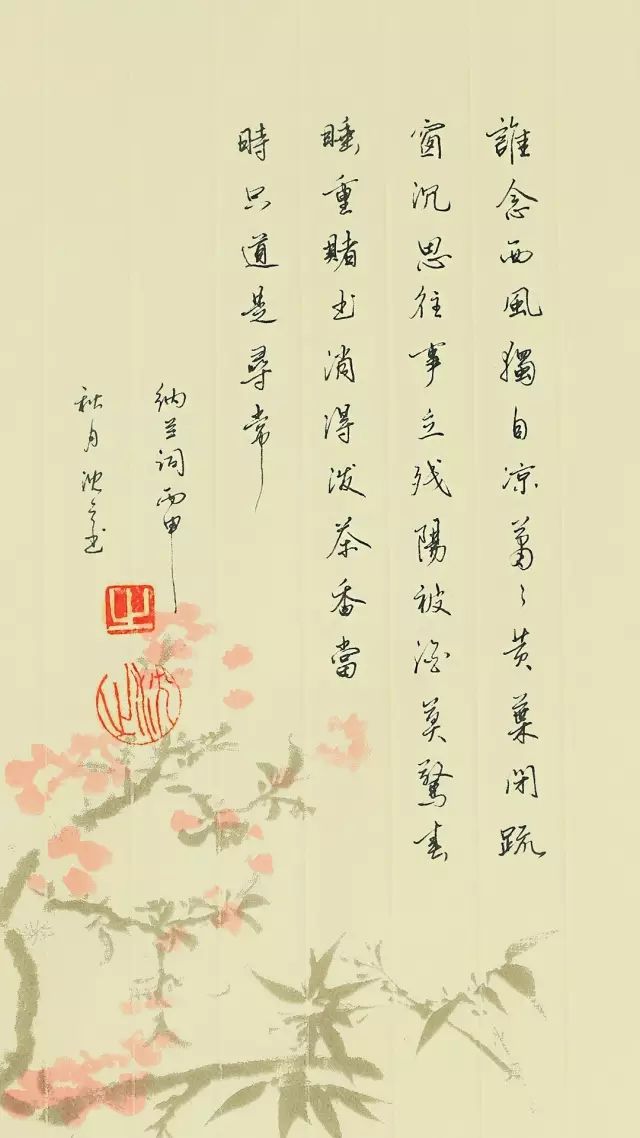 誰念西風獨自凉蕭〻黄葉閉疏
窗沉思往事立残陽被酒莫驚春
睡重賭书消得泼茶香當
時只道是尋常
納兰詞丙申
秋月沈之书
之